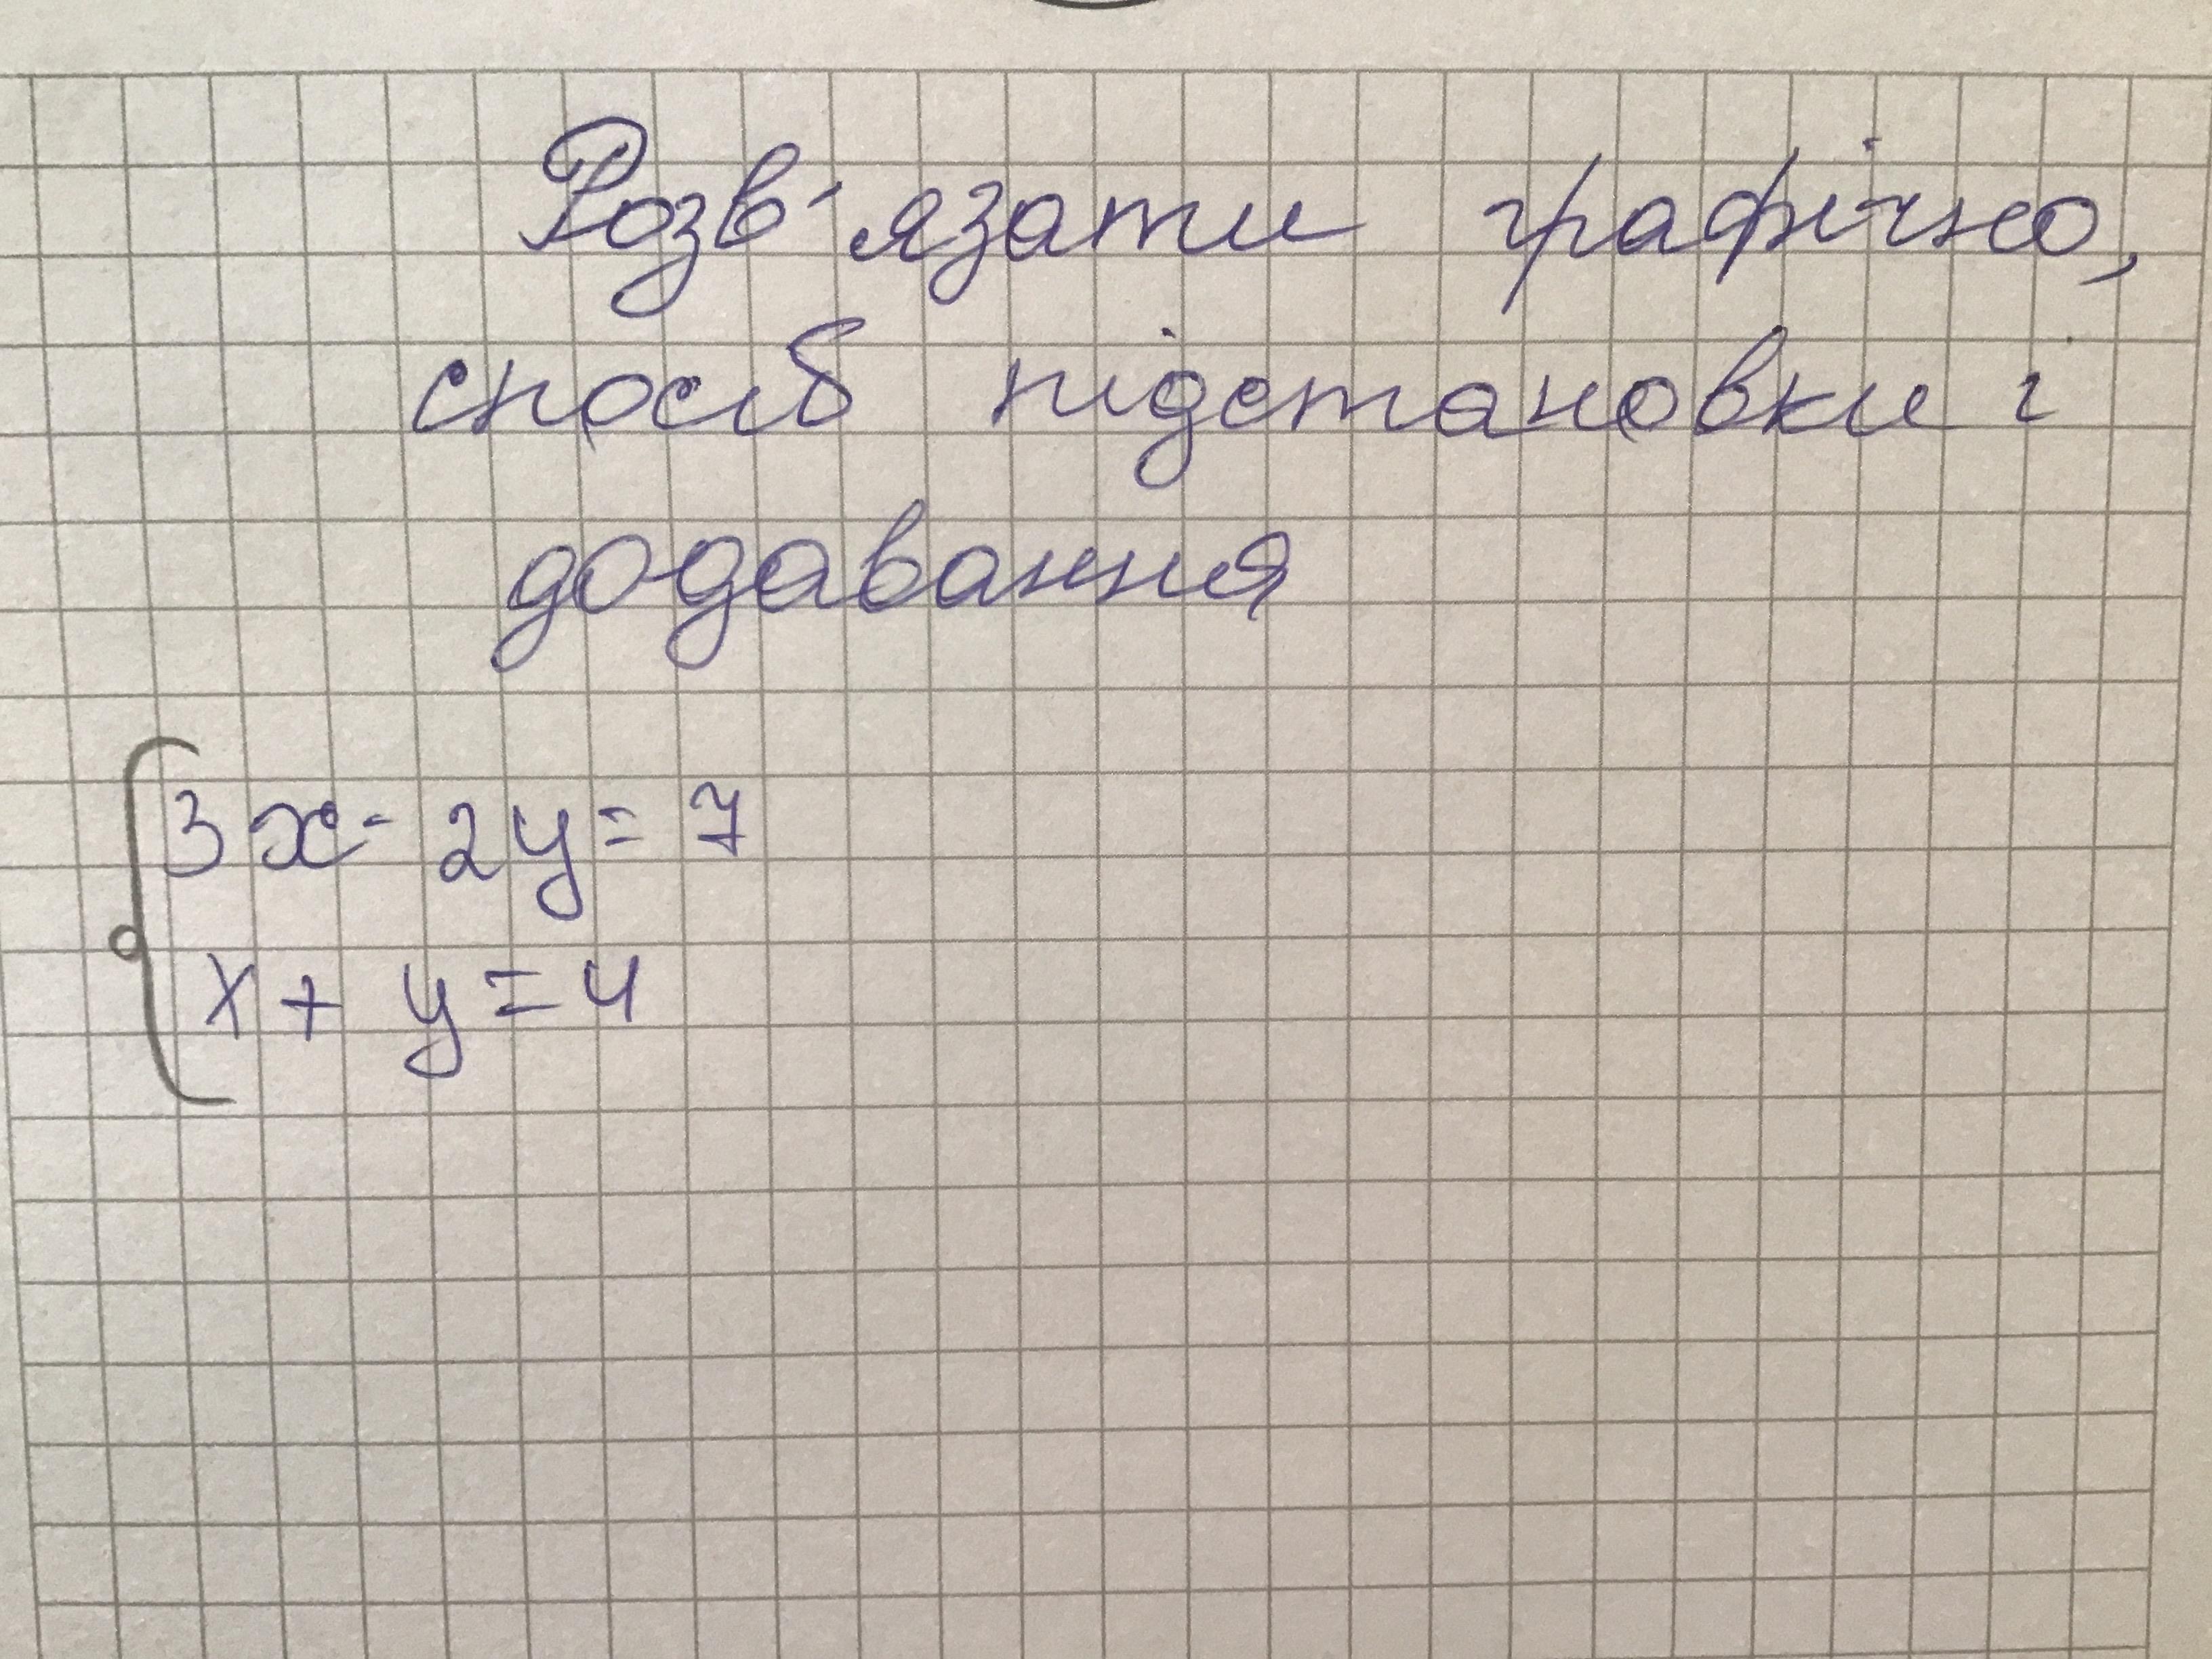 Розв'язати графічно,
спосіб підстановки і
додавання
3x - 2y = 7
x + y = 4